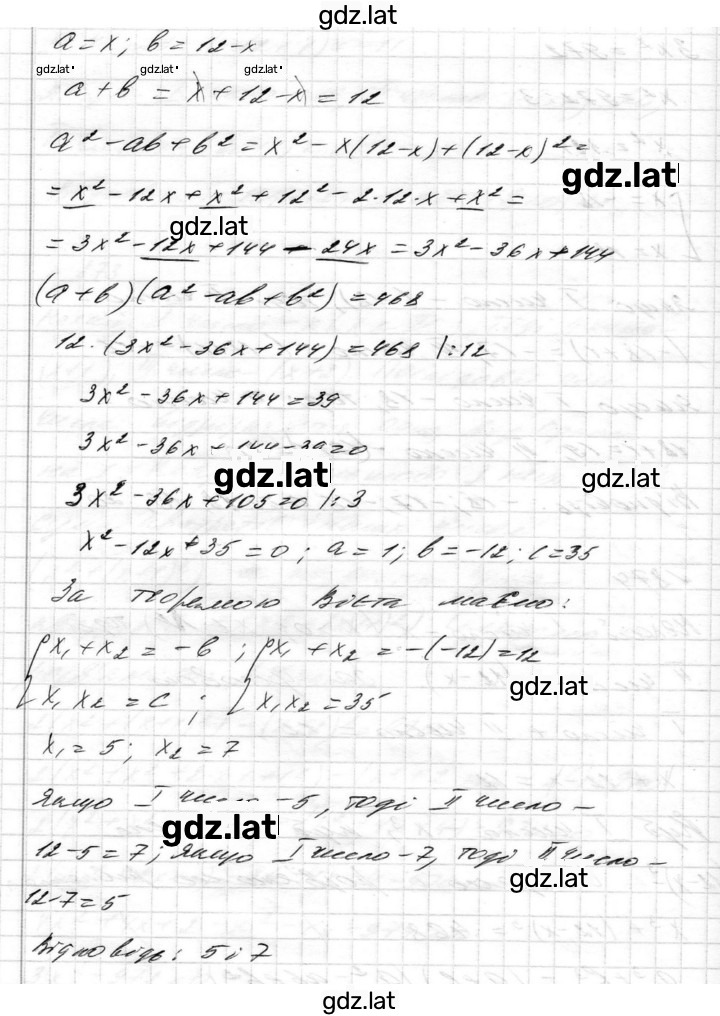 gdz.lat
a = x; b = 12-x
gdz.lat gdz.lat gdz.lat
a + b = x + 12 - x = 12
a² - ab + b² = x² - x(12-x) + (12-x)² =
gdz.lat
= x² - 12x + x² + 12² - 2·12·x + x² =
gdz.lat
= 3x² - 12x + 144 - 24x = 3x² - 36x + 144
(a+b)(a² - ab + b²) = 468
12·(3x² - 36x + 144) = 468 |:12
3x² - 36x + 144 = 39
3x² - 36x + 144 - 39 = 0
gdz.lat gdz.lat
3x² - 36x + 105 = 0 |:3
x² - 12x + 35 = 0; a = 1; b = -12; c = 35
За теоремою Вієта маємо:
{ x₁ + x₂ = -b ; { x₁ + x₂ = -(-12) = 12
gdz.lat
x₁ x₂ = c ; x₁ x₂ = 35
x₁ = 5; x₂ = 7
Якщо I число - 5, тоді II число -
gdz.lat
12-5 = 7; якщо I число - 7, тоді II число -
gdz.lat
12-7 = 5
Відповідь: 5 і 7
gdz.lat